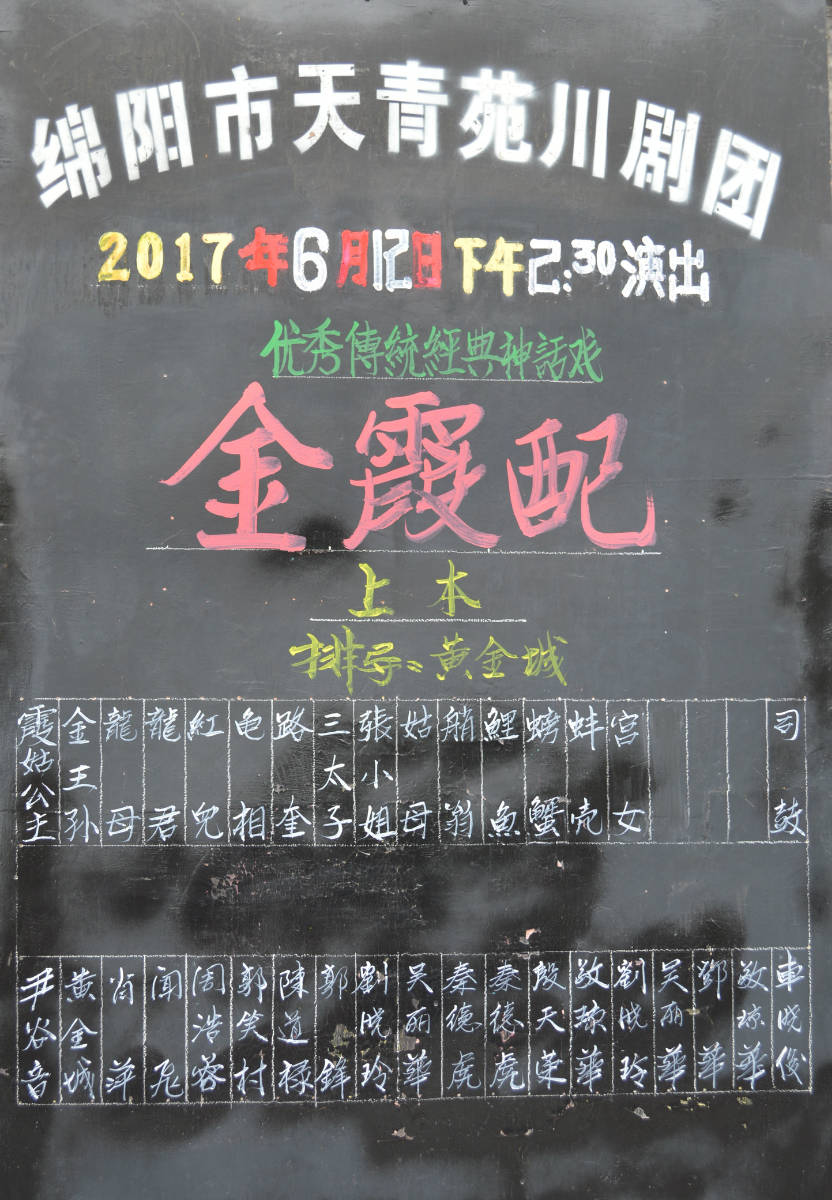 绵阳市天青苑川剧团
2017年6月12日下午2:30演出
优秀傳統經典神話戏
金霞配
上本
排导：黄金城
霞姑公主 金王孙 龍母 龍君 紅兒 龟相 路奎 三太子 張小姐 姑母 艄翁 鯉魚 螃蟹 蚌壳 宫女 司鼓
尹谷音 黄金城 肖萍 闻飛 周浩蓉 郭笑村 陳道禄 郭鋒 劉晓玲 吴丽華 秦德虎 秦德虎 殷天荣 敬琼華 劉晓玲 吴丽華 鄧華 敬琼華 車晓俊